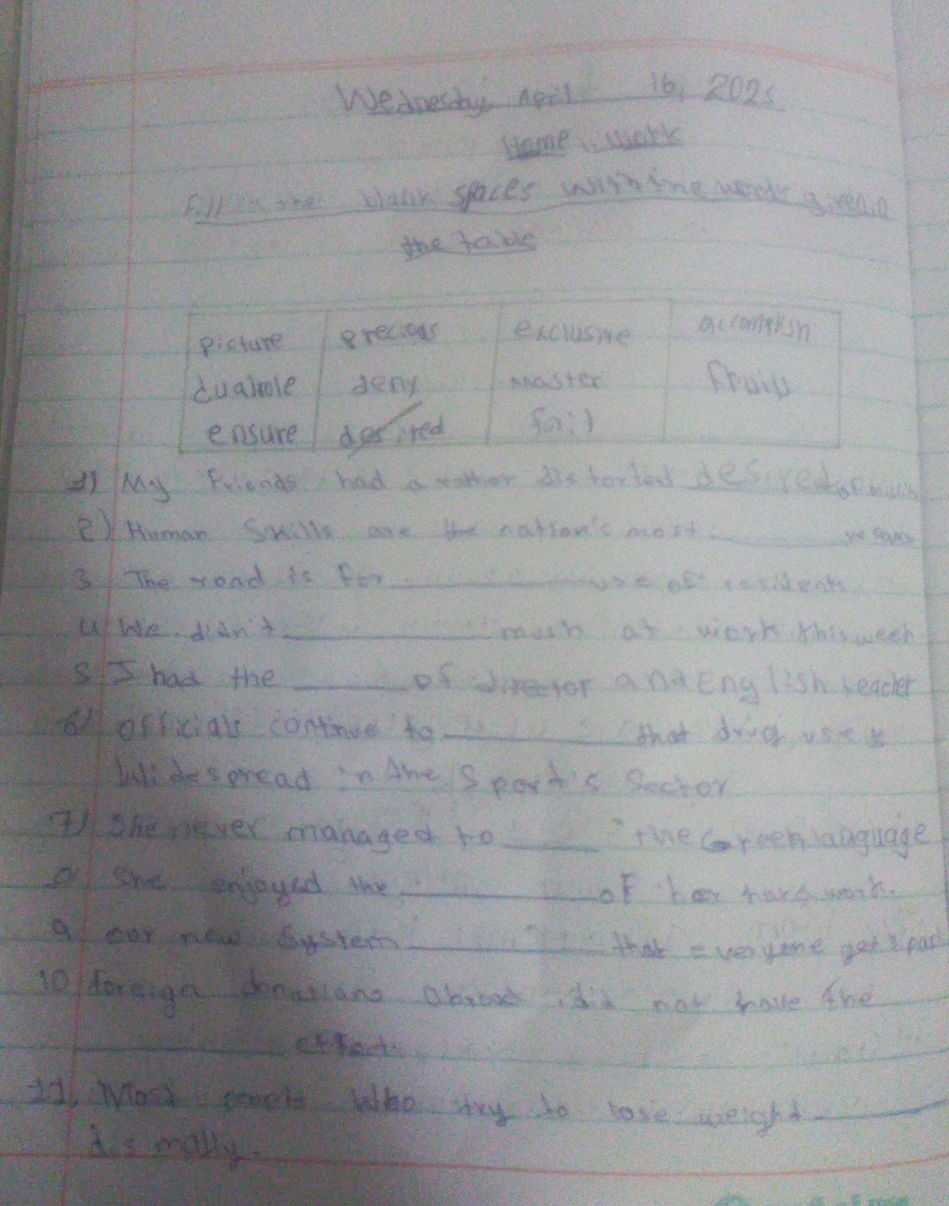 Wednesday, April 16, 2025
Home work
Fill in the blank spaces with the words given in
the table
picture precious exclusive
dualrole deny master
ensure desired fail
1) My Friends had a rather distorted desired of
2) Human Skills are the nation's most
3 The road is for use of residents
4 We didn't much at work this week
5 I had the of director and English teacher
6) officials continue to that drug use is
Widespread in the Sport's Sector
7) She never managed to the Greek language
8) She enjoyed the of her hard work.
9 our new system that everyone gets
10 foreign donations abroad did not have the
effect.
11. Most people Who try to lose weight
dismally.